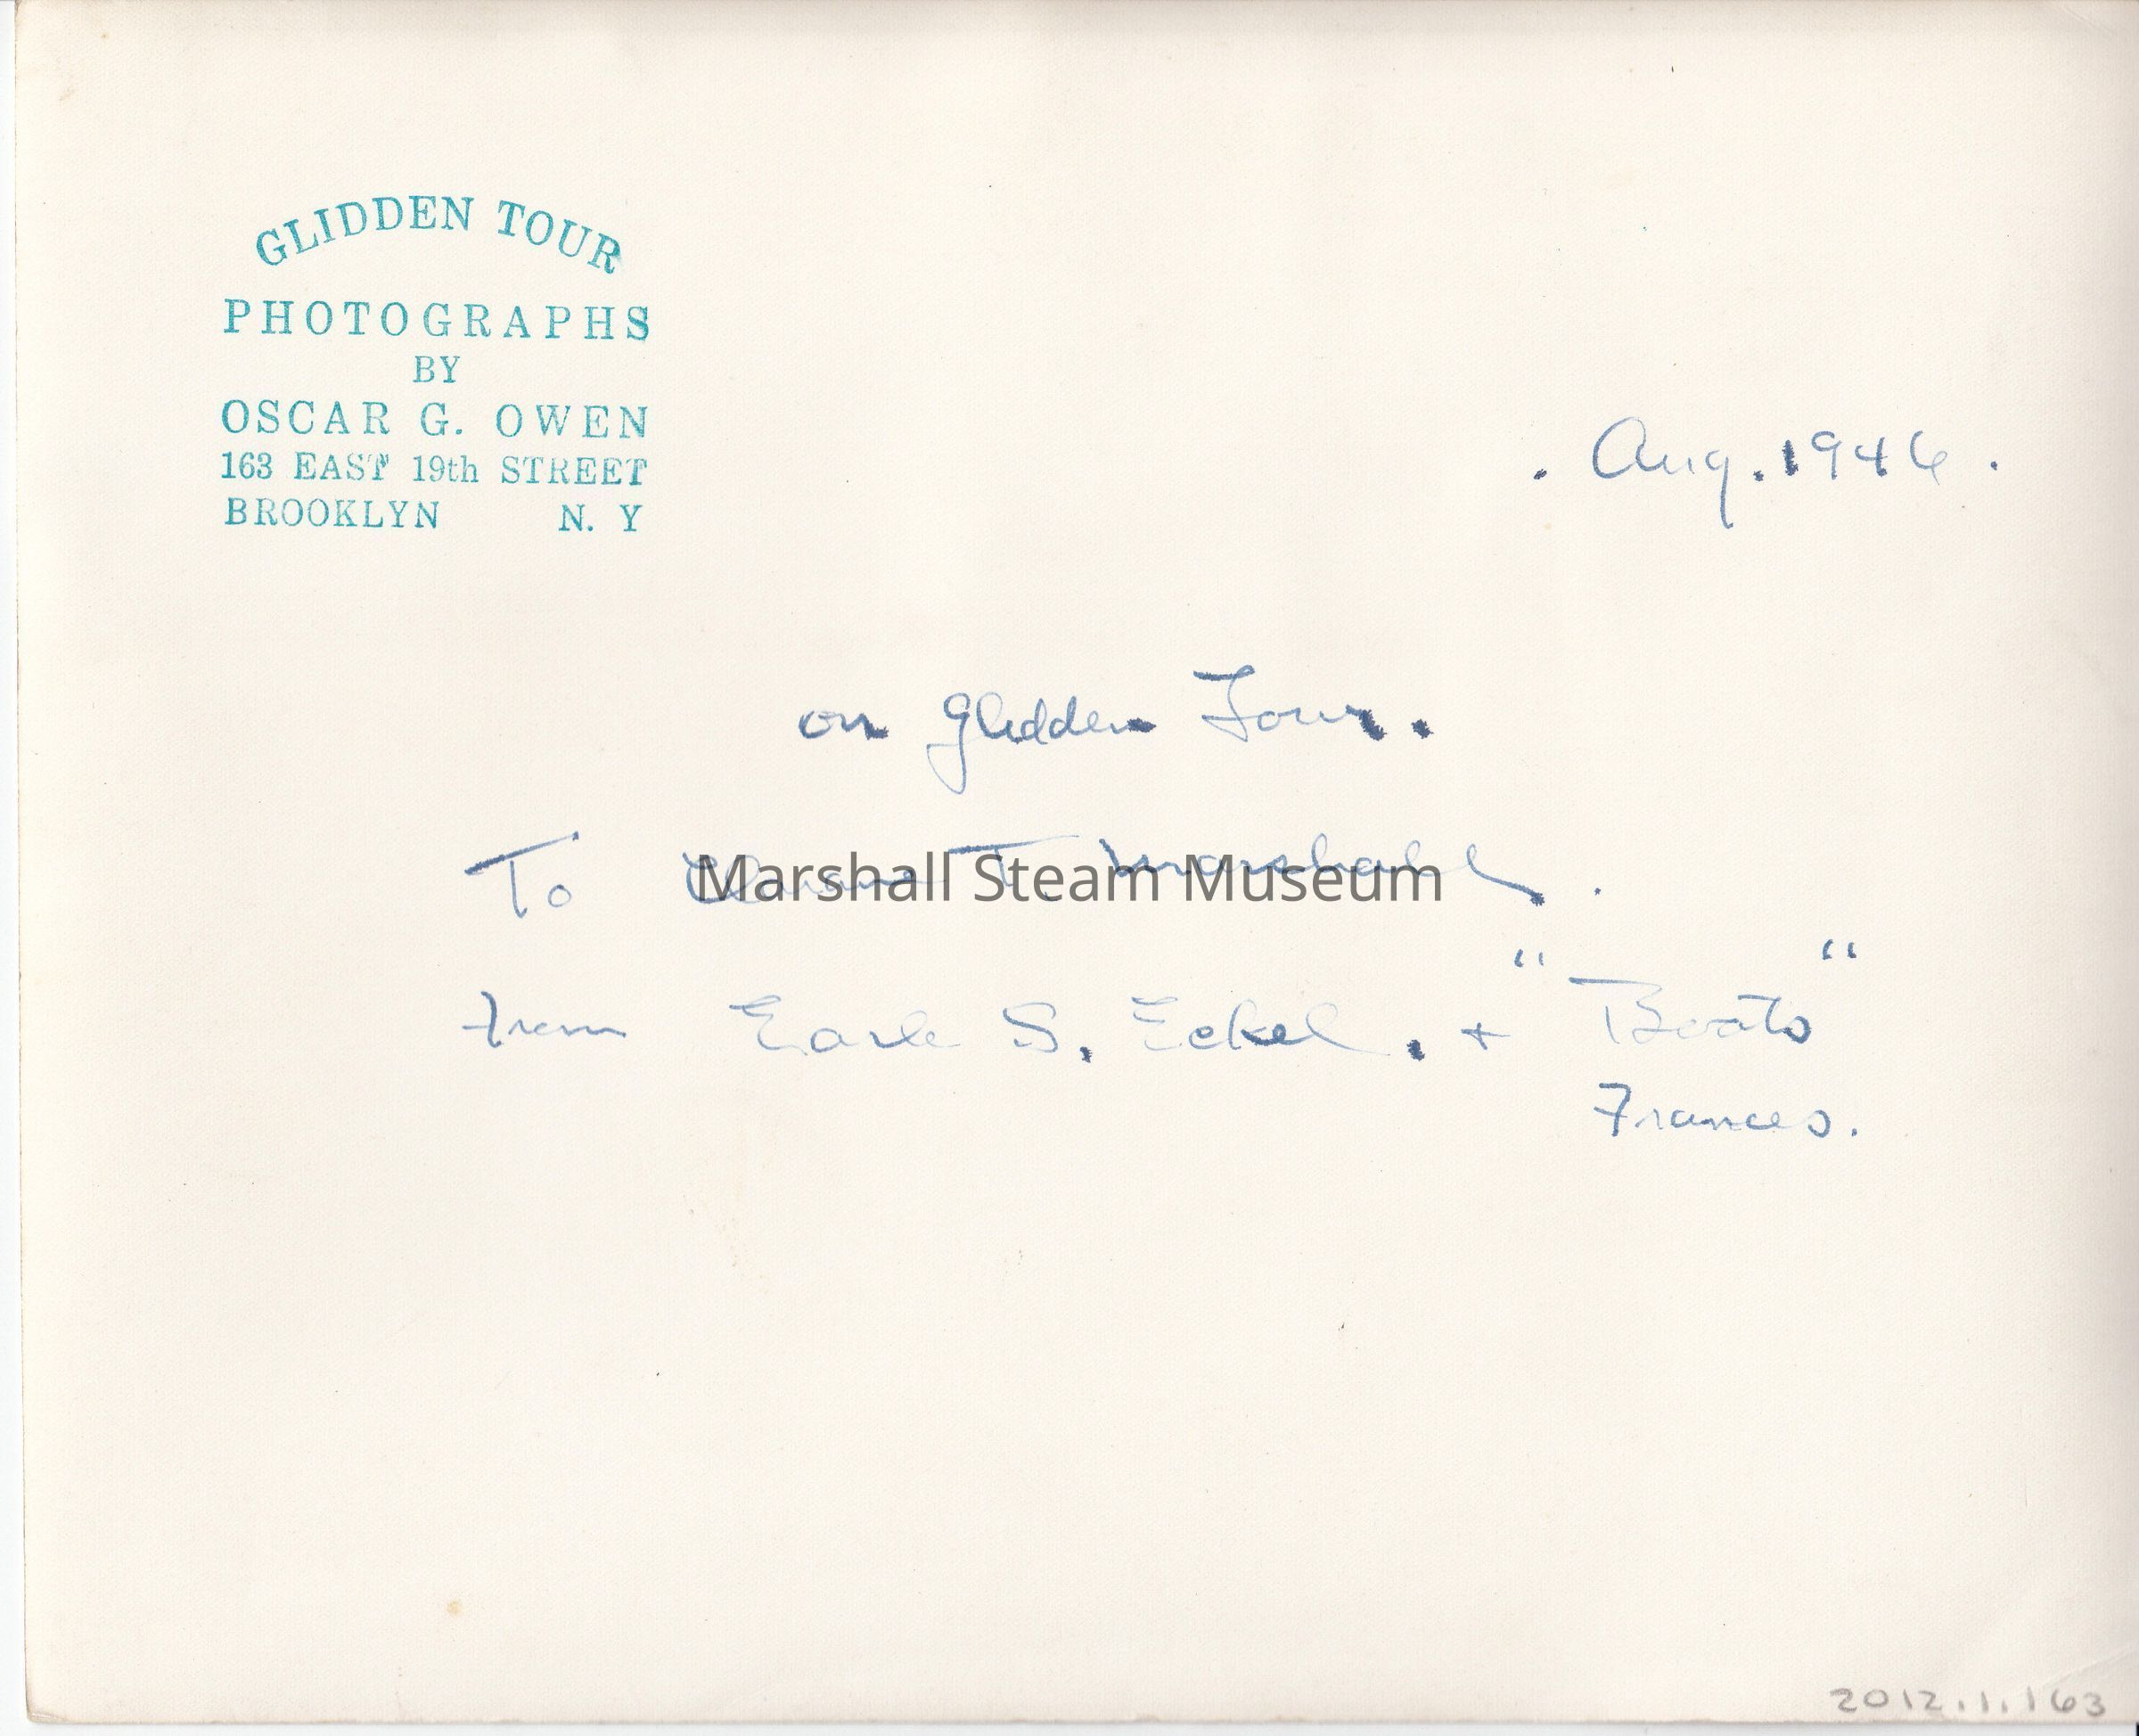 GLIDDEN TOUR
PHOTOGRAPHS
BY
OSCAR G. OWEN
163 EAST 19th STREET
BROOKLYN N. Y
. Aug. 1946.
on Glidden Tour.
To T. Marshall.
Marshall Steam Museum
from Earle S. Eckel. + "Boots"
Frances.
2012.1.163